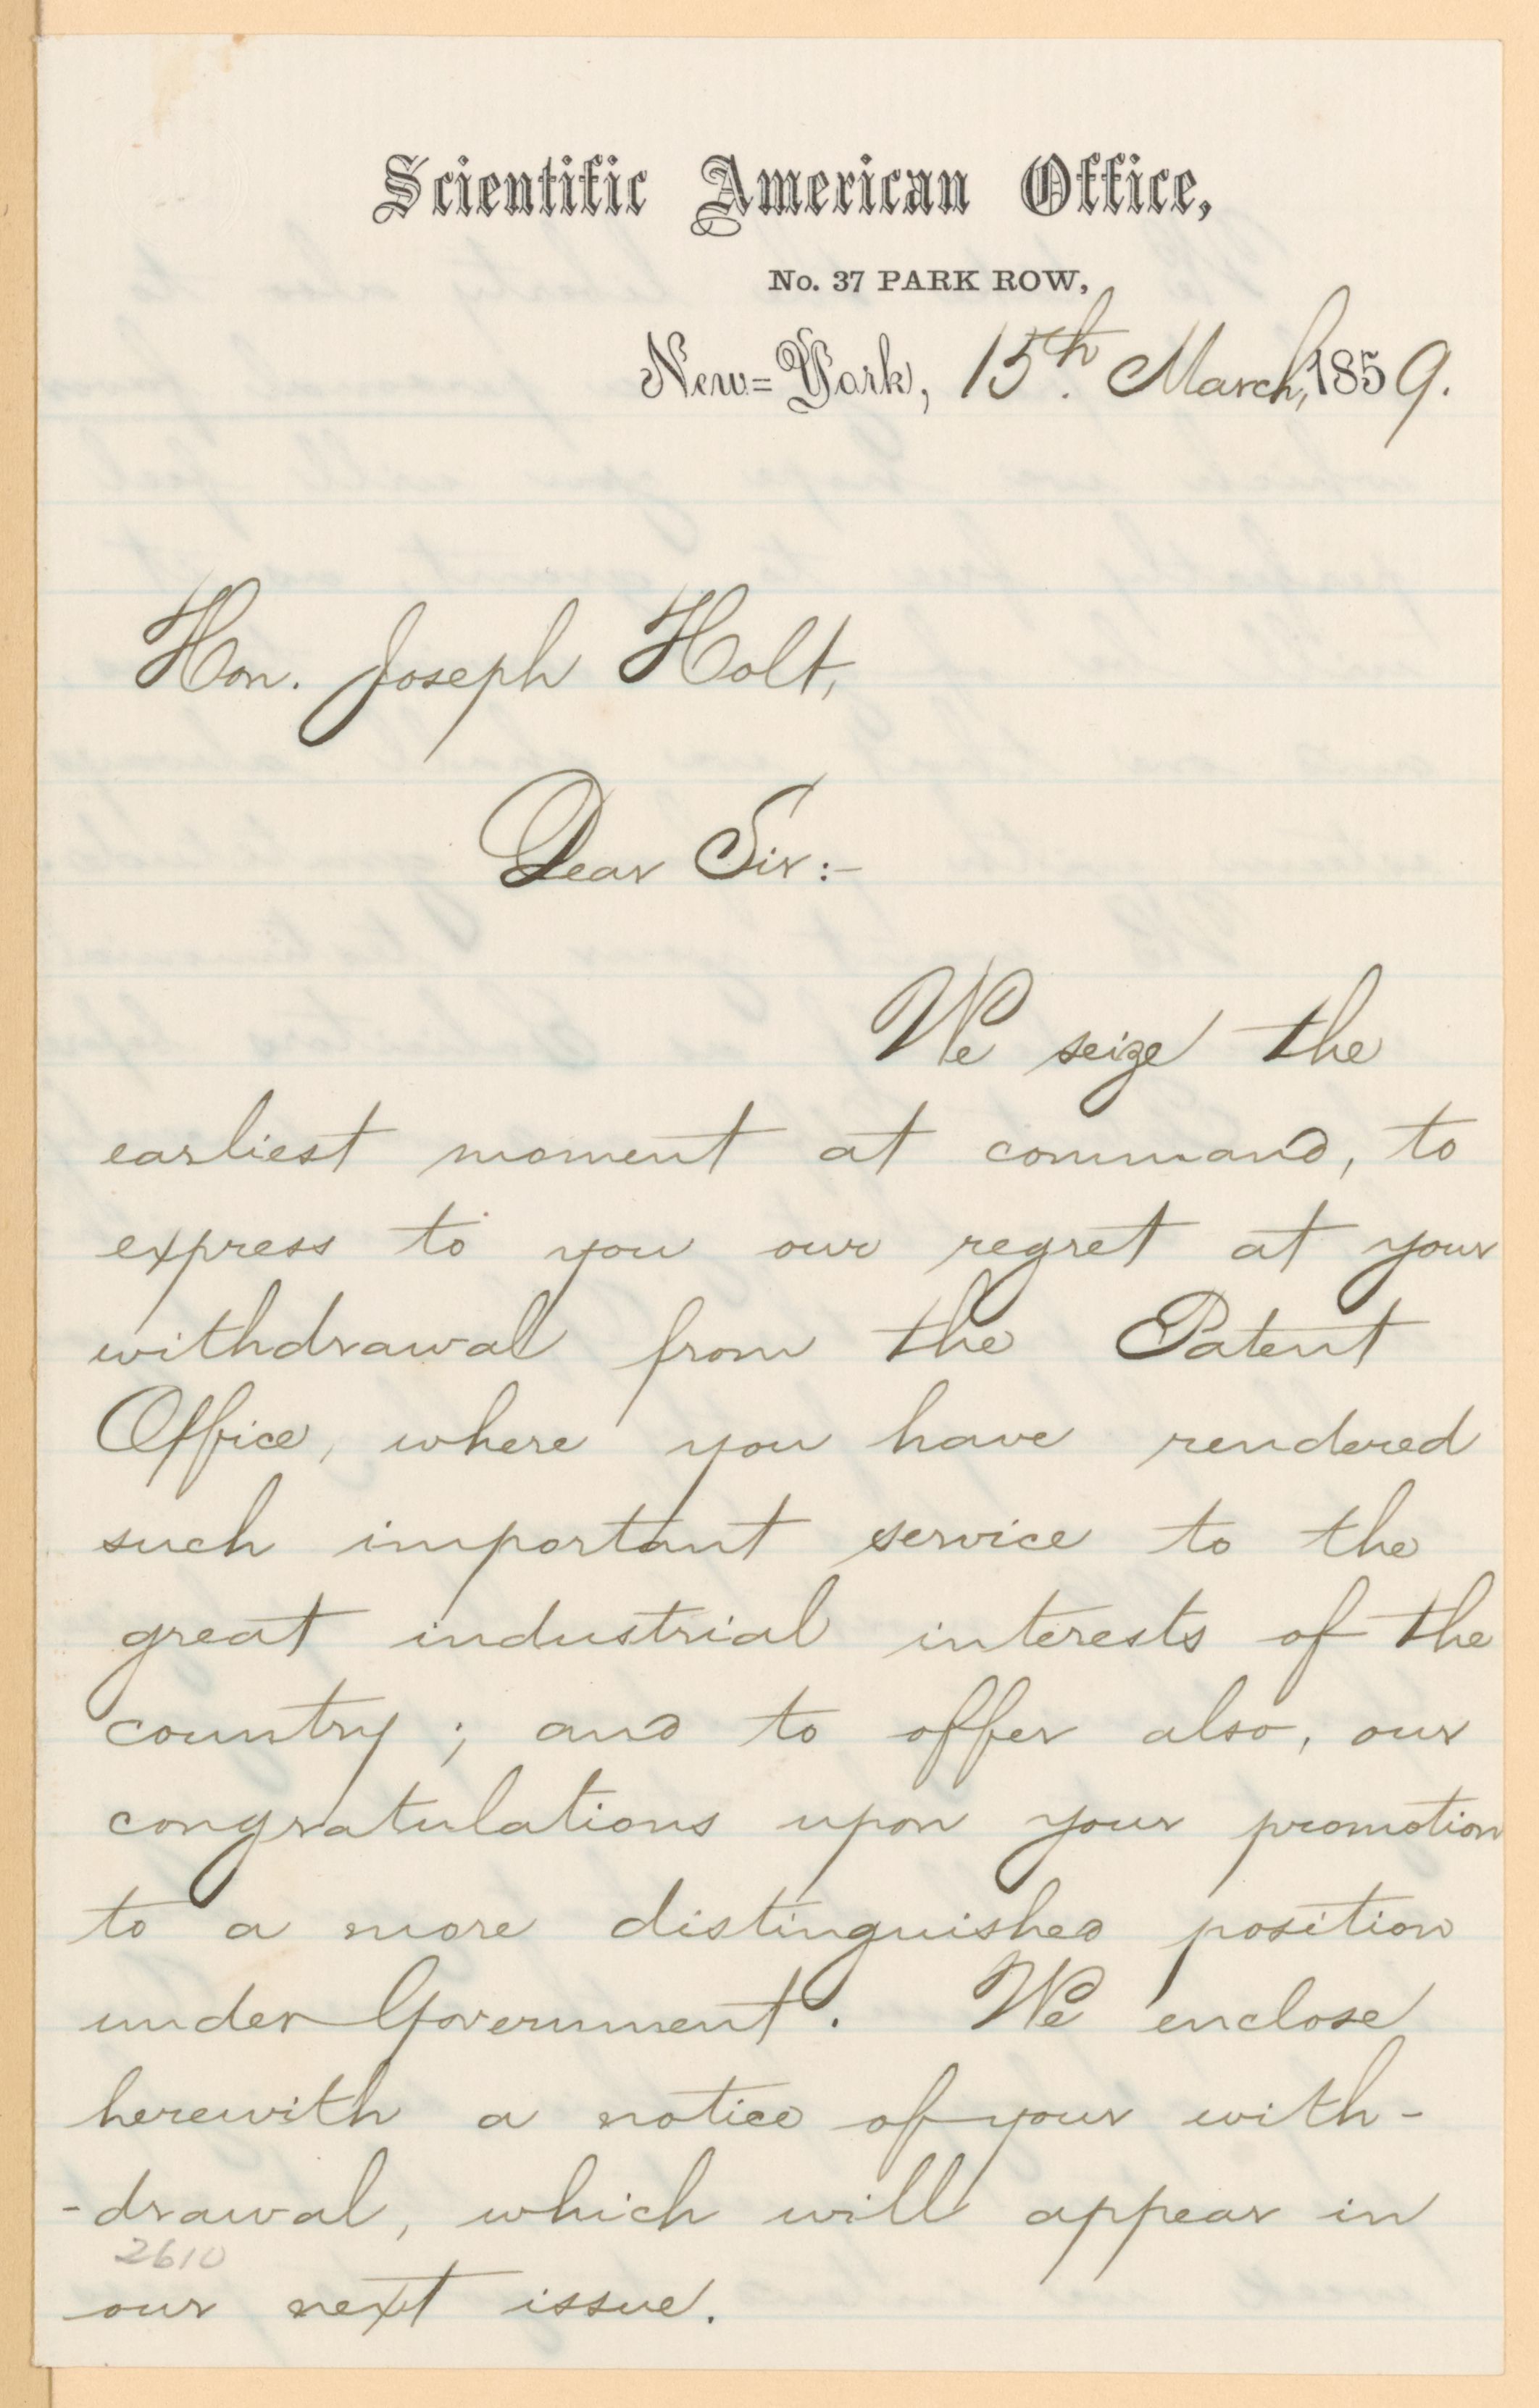 Scientific American Office,
No. 37 PARK ROW,
New=York, 15th. March, 1859.
Hon. Joseph Holt,
Dear Sir:-
We seize the
earliest moment at command, to
express to you our regret at your
withdrawal from the Patent
Office, where you have rendered
such important service to the
great industrial interests of the
country; and to offer also, our
congratulations upon your promotion
to a more distinguished position
under Government. We enclose
herewith a notice of your with-
-drawal, which will appear in
2610
our next issue.